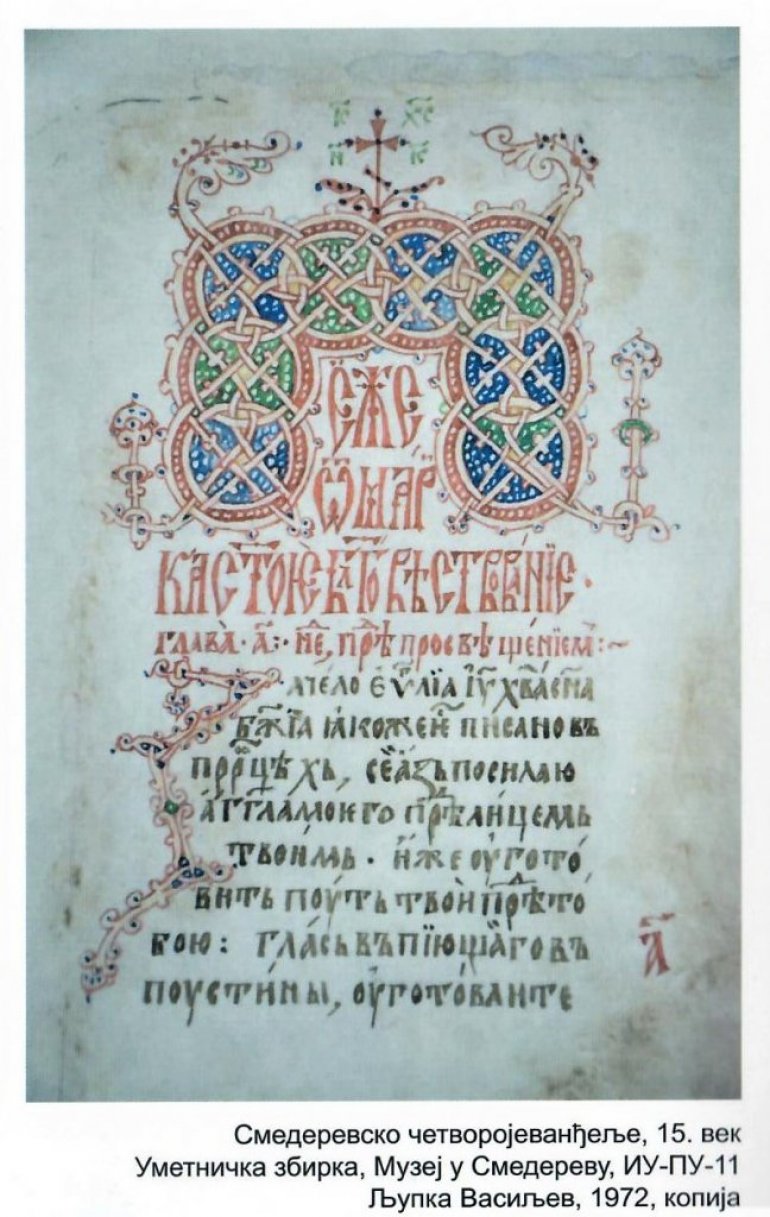 І҃С Х҃С
НИ КА
Е҆ЖЕ
Ѿ МАР
КА СТ҃ОЮ БЛ҃ГОВѢСТВОВАНІЕ ·
ГЛАВА̀ · А҃ :· НЕ҃, ПРѢ ПРОСВѢЩЕНІЕМ :~
Ꙁачело еѵ҃лїа іу҃ х҃ва с҃на
б҃жїа ꙗкоже е҆ писано въ
прⷪ҇рцѣхь, се а҆зь посилаю
а҆г҃гла моѥго прѣⷣ лицемь
твоимь · и҆же оуготѡ
вить поуть твои прѣⷣ то
бою : гла́сь въпїющаго въ
поусти́ны, оуготова́ите
А҃
Смедеревско четворојеванђеље, 15. век
Уметничка збирка, Музеј у Смедереву, ИУ-ПУ-11
Љупка Васиљев, 1972, копија